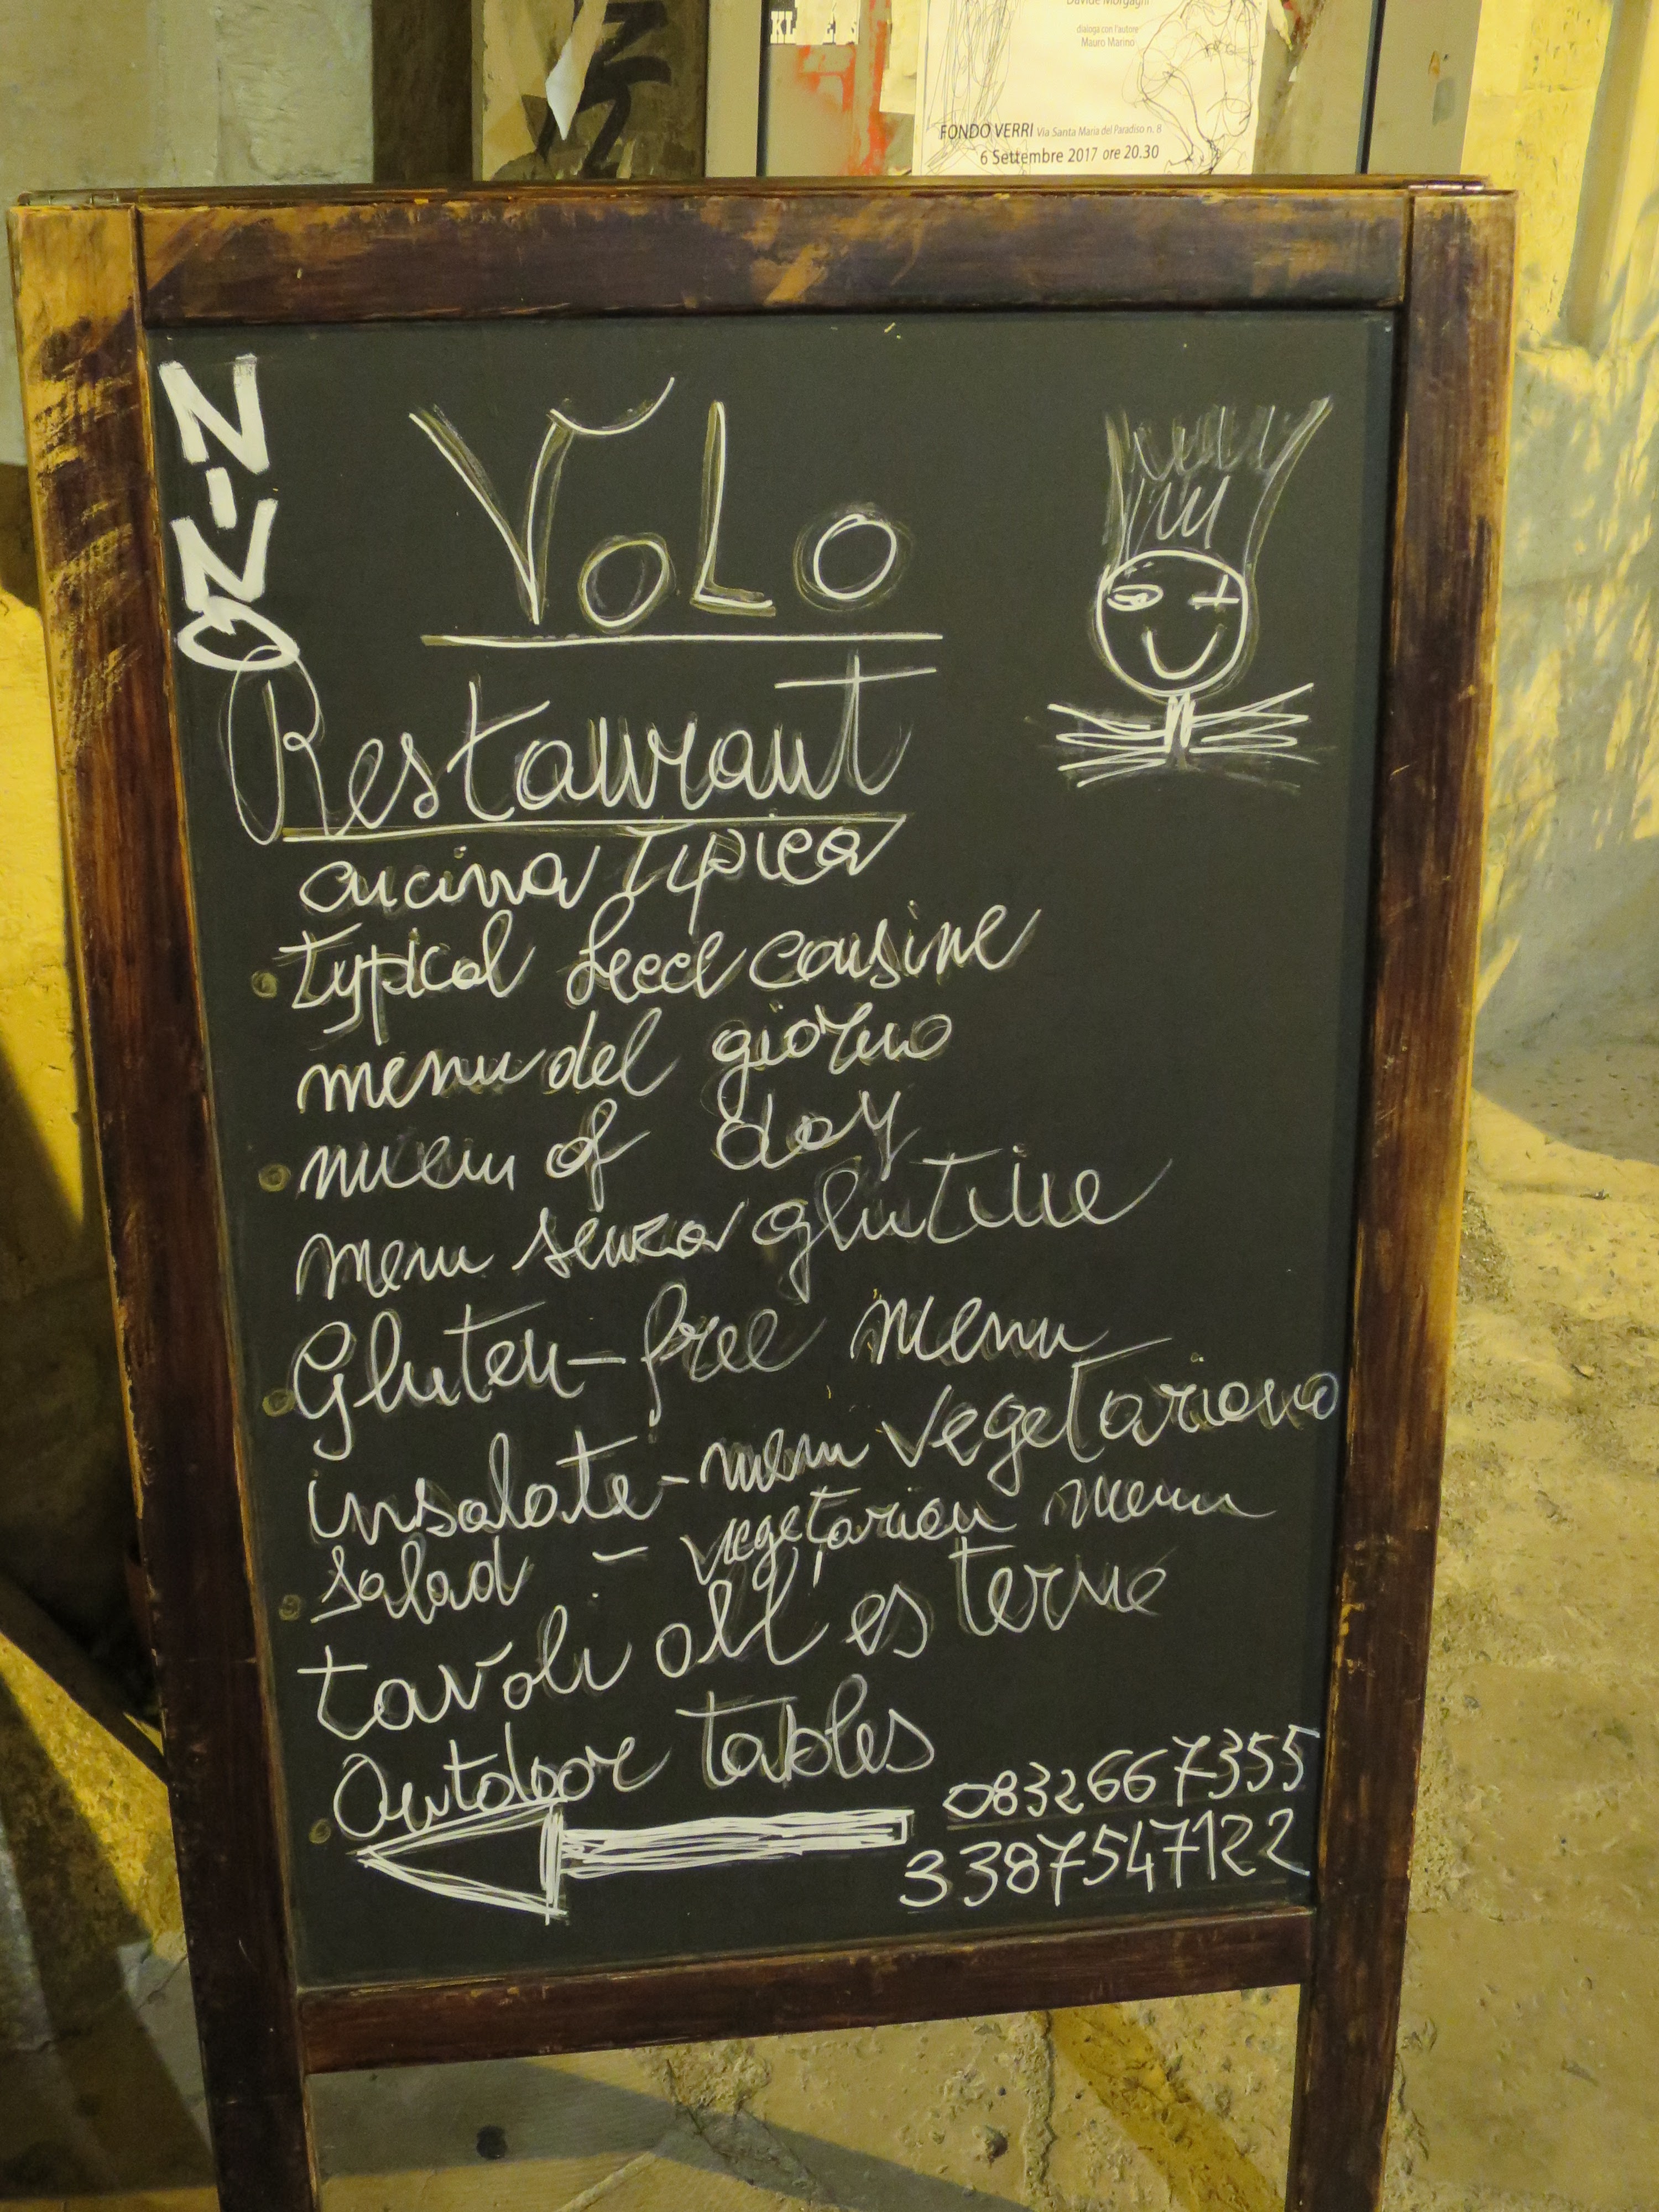 Davide Morgagni
dialoga con l'autore
Mauro Marino
FONDO VERRI Via Santa Maria del Paradiso n. 8
6 Settembre 2017 ore 20.30
NINO
VOLO
Restaurant
cucina tipica
typical Lecce cousine
menu del giorno
menu of day
menu senza glutine
Gluten-free menu
insalate - menu vegetariano
salad - vegetarian menu
tavoli all'esterno
Outdoor tables
0832667355
3387547122